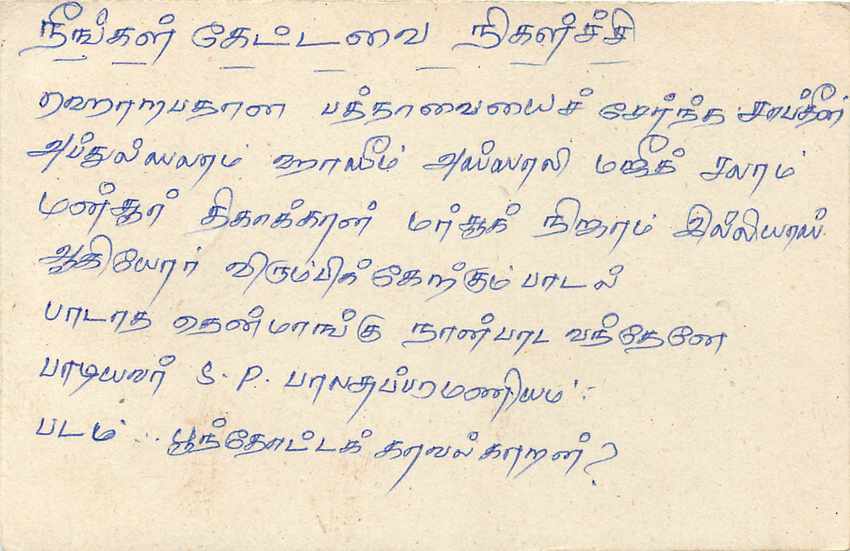 நீங்கள் கேட்டவை நிகழ்ச்சி
ஹொறபதான பத்தாவையைச் சேர்ந்த சாபதீன்
அப்துல்ஸலாம் ஹாலீம் அஸ்ஸாலி மஜீத் சலாம்
மன்சூர் மர்சூக் நிஜாம் இல்லியாஸ்
ஆகியோர் விரும்பிக்கேற்கும் பாடல்
பாடாத தென்மாங்கு நான்பாட வந்தேனே
பாடியவர் S. P. பாலசுப்பரமணியம் :
படம் .. பூந்தோட்டக் காவல்காறன்?